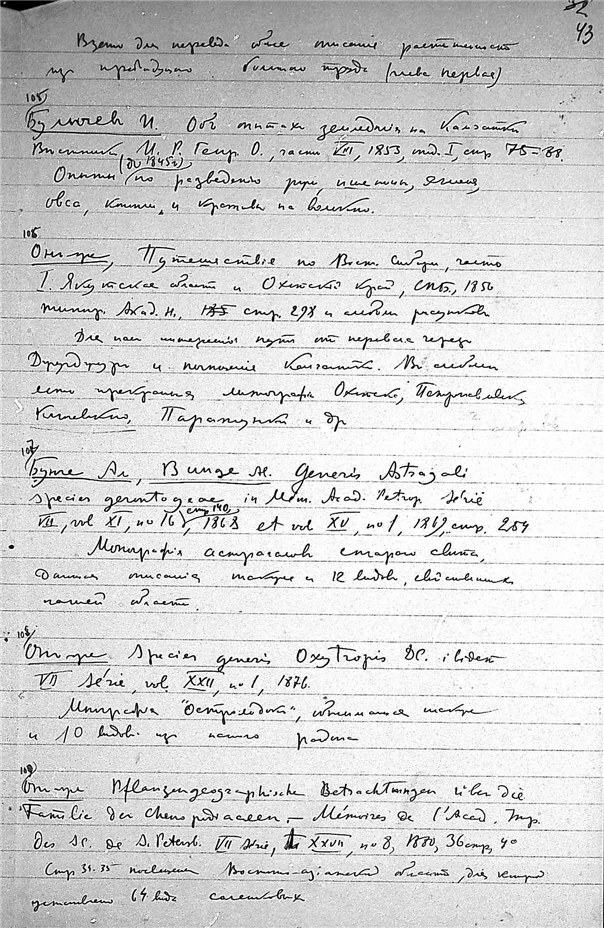 32
43
Взято для перевода общее описание растительност
из предыдущего большого труда (глава первая)
105)
Булычев И. Об опытах земледелия на Камчатке
Вестник И. Р. Геогр. О., часть VIII, 1853, отд. I, стр 75-88.
(до 1845 г)
Опыты по разведению ржи, пшеницы, ячменя,
овса, и крапивы на волокно.
106
Он-же, Путешествіе по Вост. Сибири, часть
I. Якутская область и Охотский край, СПБ, 1856
типогр. Акад. н., стр. 298 и альбом рисунков
Для нас интересны пути от перевала через
Джугджур и посещение Камчатки. В альбоме
есть прекрасные литографии Охотска, Петропавловска,
Ключевского, Паратунки и др
107
Бунге Ал, Bunge Al. Generis Astragali
species gerontogeae in Mém. Acad. Petrop. Série
VII, vol XI, no 16, стр 140, 1868 et vol XV, no 1, 1869, стр. 254
Монографія астрагалов старого света,
Данная описания также и 12 видов, свойственных
нашей области.
108
Он-же Species generis Oxytropis DC. ibidem
VII Série, vol. XXII, no 1, 1876.
Монография "Остролодок", обнимающая также
и 10 видов из нашего района
109
Он-же Pflanzengeographische Betrachtungen über die
Familie der Chenopodiaceen. – Mémoires de l'Acad. Imp.
des Sc. de S. Petersb. VII Série, XXVII, no 8, 1880, 36 стр, 4°
Стр 34-35 посвящены Восточно-азиатской области, для которой
установлено 64 вида солянковых